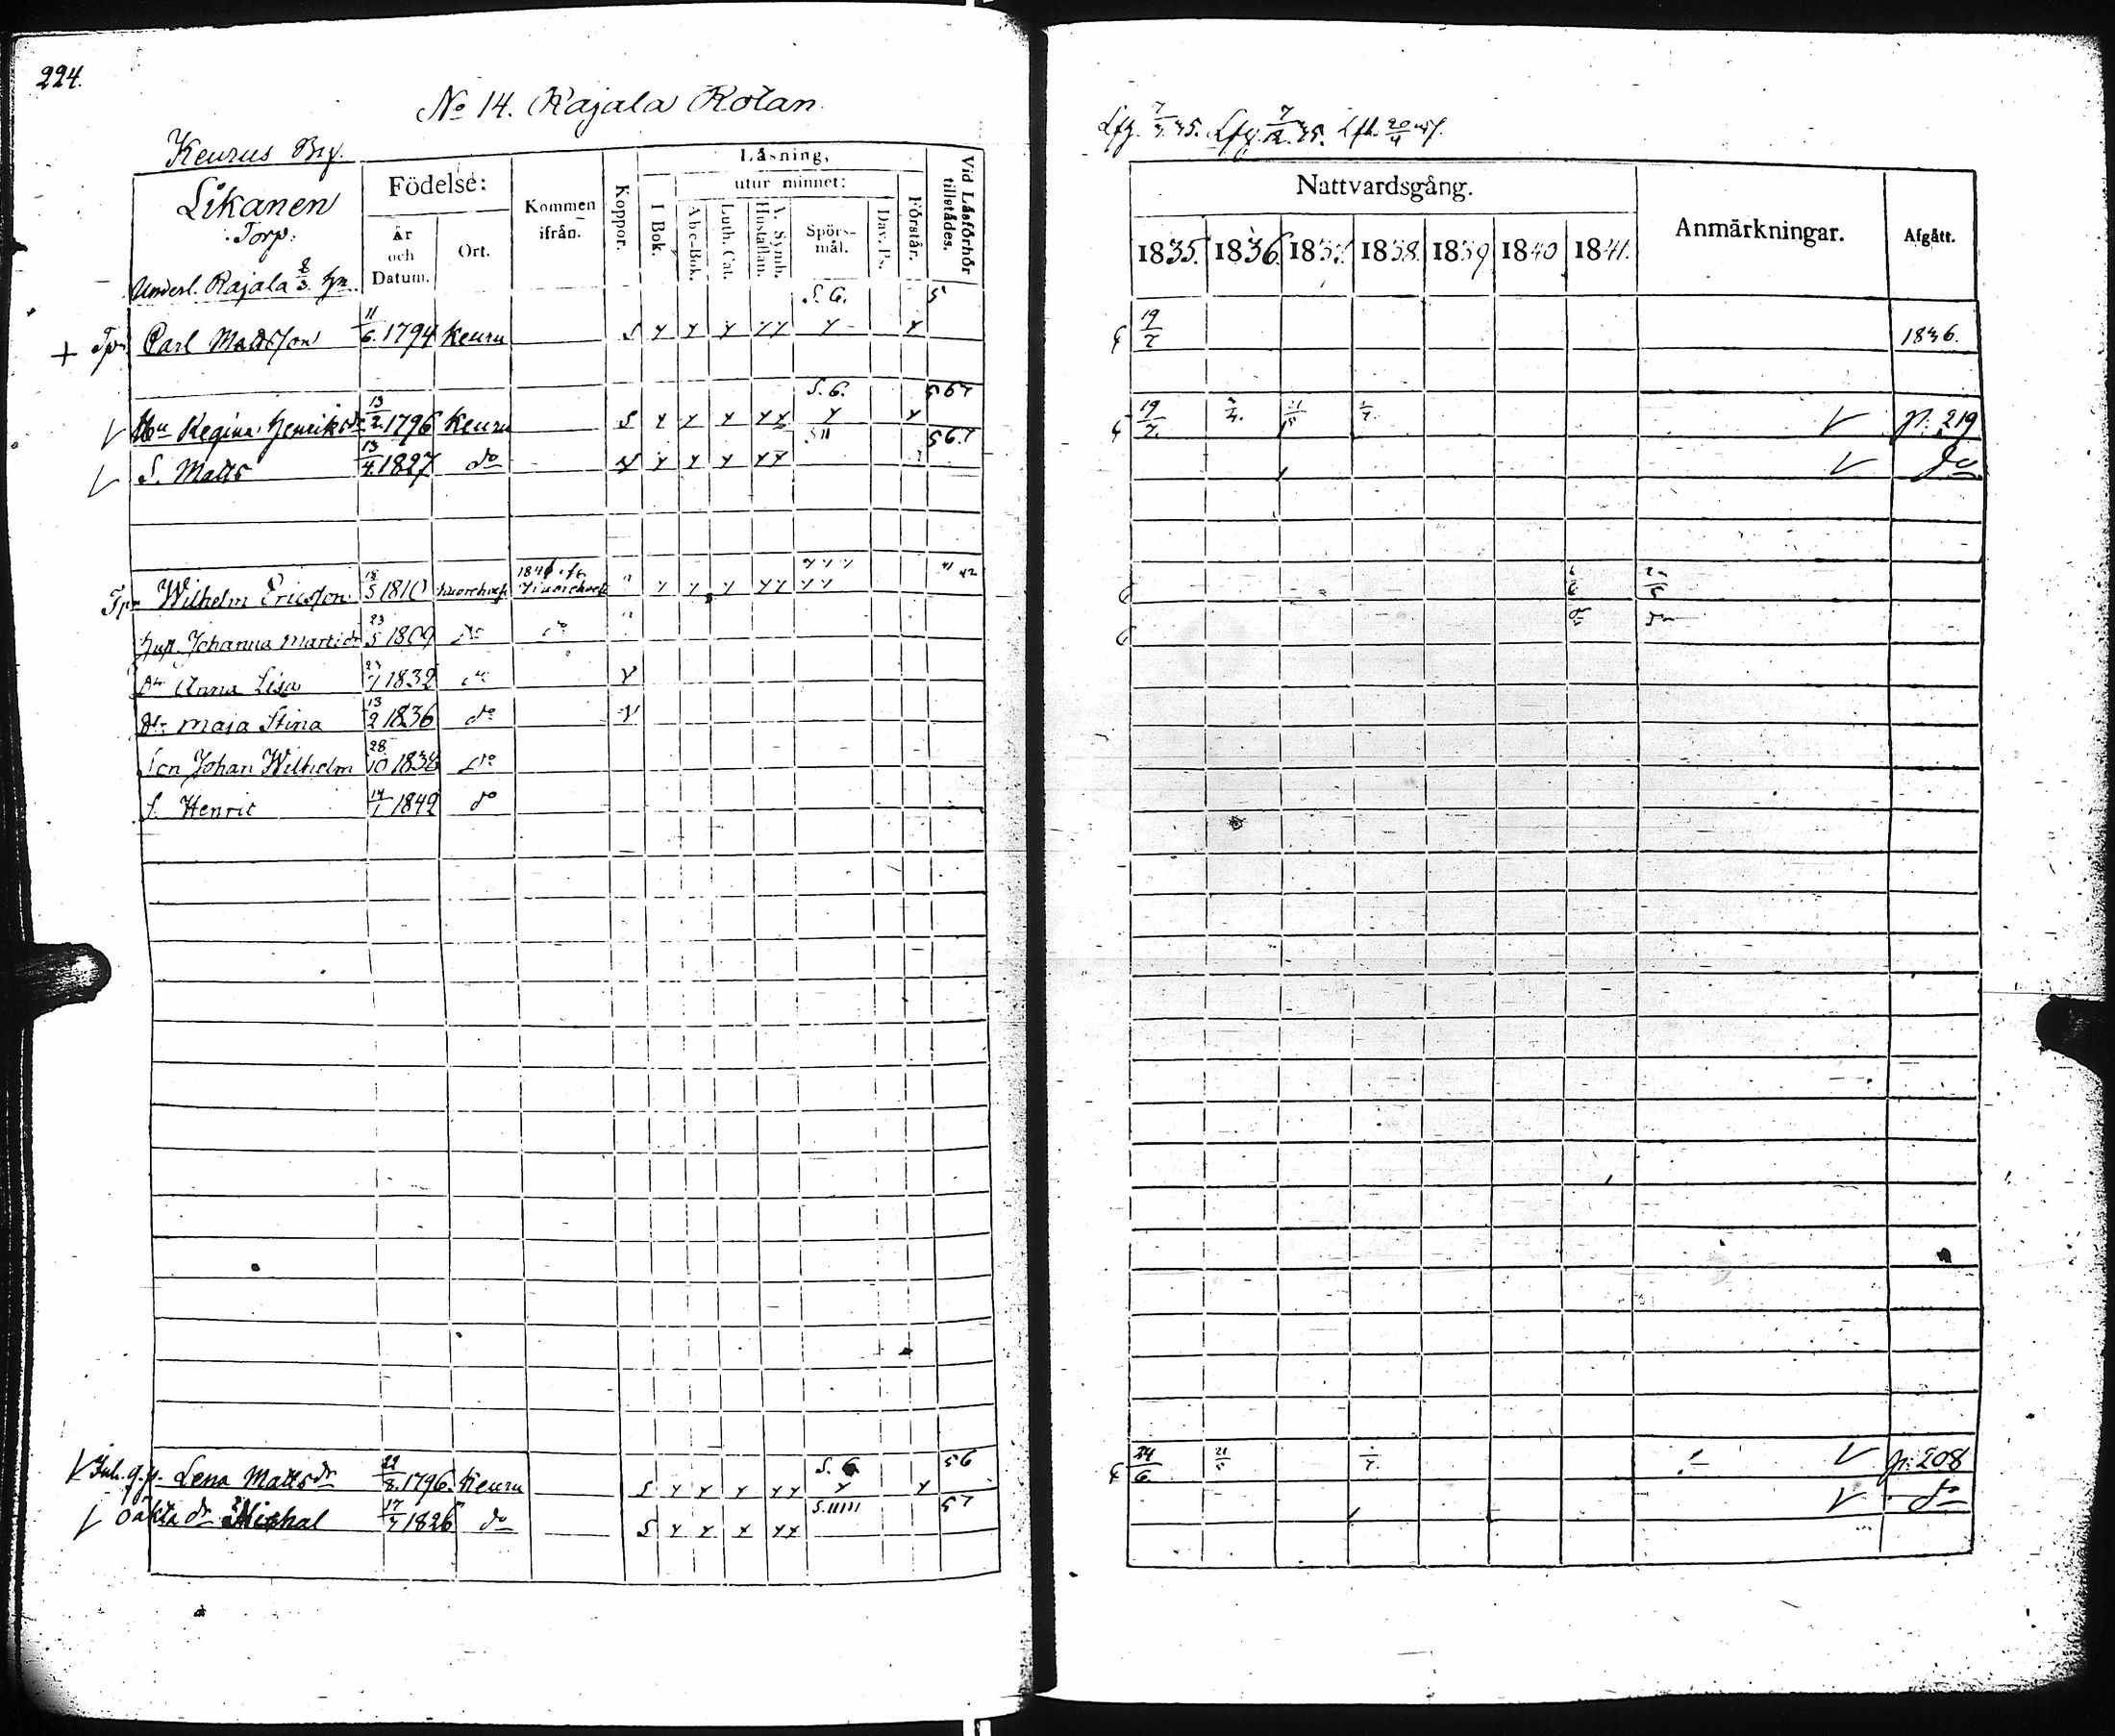 224.
No 14. Rajala Rotan.
Keurus By.
Likanen
Torp.
Underl. Rajala 2/3 hn.
Födelse:
År och Datum.
Ort.
Kommen ifrån.
Koppor.
Läsning,
I Bok.
utur minnet:
Abc-Bok.
Luth. Cat.
A. Symb. Hustaflan.
Spörs-mål.
Dav. Ps.
Förstår.
Vid Läsförhör tillstädes.
+ Tpr Carl Mattsson 11/6. 1794 Keuru S y y y y y S. G. y y 5
Hu Regina Henriksdr 13/2. 1796 Keuru S y y y y y S. G. y y 5 6 7
S. Matts 13/4. 1827 do y y y y y 5 6 7
Tpr Wilhelm Ericsson 18/5 1810 y y y y y 41 42
Hust. Johanna 23/5 1809 do do
Dr Anna Lisa 1832 do
Dr Maja Stina 13/2 1836 do
Son Johan Wilhelm 28/10 1838 do
S. Henric 14/1 1842 do
Inh. q.p. Lena Mattsdr 22/8. 1796. Keuru S y y y y y S. G. y y 5 6
Oäkta dr Michal 17/7 1826 do S y y y y y S. 5 7
Nattvardsgång.
1835. 1836. 1837. 1838. 1839 1840 1841.
Anmärkningar.
Afgått.
19/7 1836.
19/7. p. 219
do
24/6. 21/5 p. 208
do